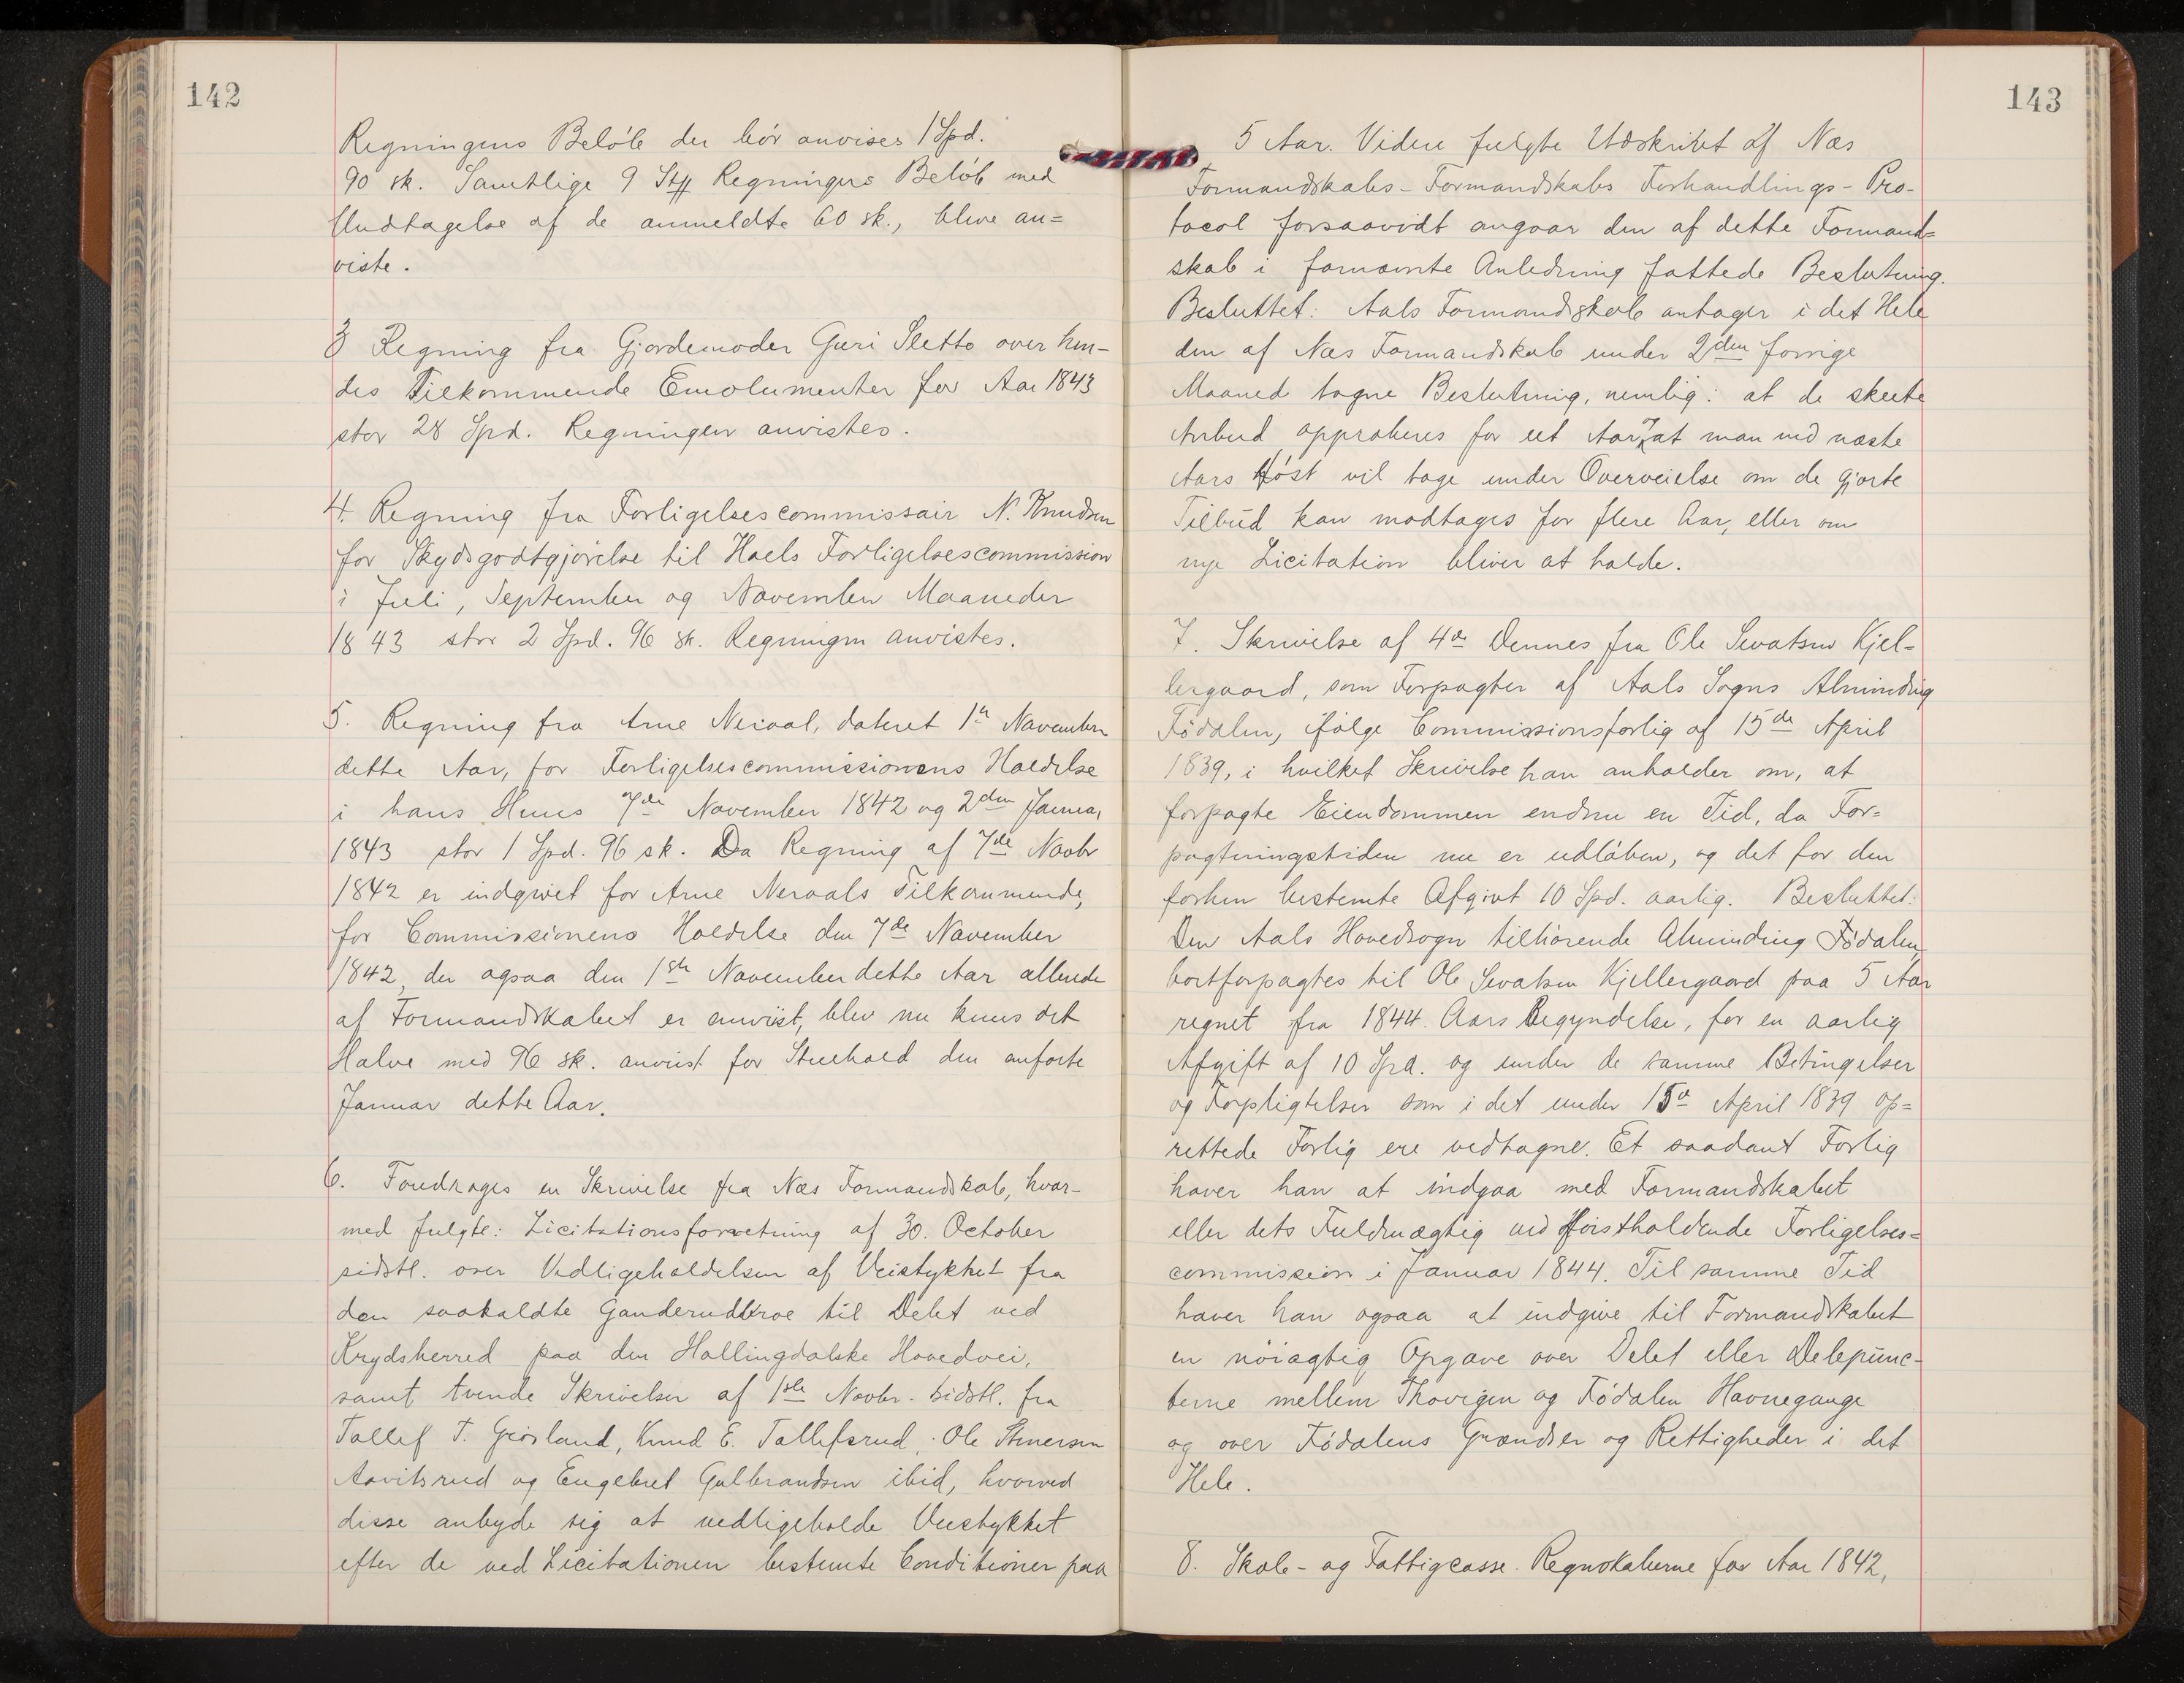 142
Regningens Beløb der bør anvises 1 Spd.
90 sk. Samtlige 9 Stk Regningers Beløb med
Undtagelse af de anmeldte 60 sk., blive an=
viste.
3 Regning fra Gjordemoder Guri Sletto over hen-
des Tilkommende Emolumenter for Aar 1843
stor 28 Spd. Regningen anvistes.
4. Regning fra Forligelsescommissair N. Knudsen
for Skydsgodtgjørelse til Hols Forligelsescommission
i Juli, September og November Maaneder
1843 stor 2 Spd. 96 sk. Regningen anvistes.
5. Regning fra Arne Neraal, dateret 1ste November
dette Aar, for Forligelsescommissionens Holdelse
i hans Huus 7de November 1842 og 2den Januar
1843 stor 1 Spd. 96 sk. Da Regning af 7de Novbr
1842 er indgivet for Arne Neraals Tilkommende,
for Commissionens Holdelse den 7de November
1842, der ogsaa den 1ste November dette Aar allerede
af Formandskabet er anvist, blev nu kuns det
Halve med 96 sk. anviist for Steehold den anførte
Januar dette Aar.
6. Foredrages en Skrivelse fra Næs Formandskab, hvor-
med fulgte: Licitationsforretning af 30. October
sidstl. over Vedligeholdelsen af Veistykket fra
den saakaldte Ganderudkroe til Delet ved
Krydsherred paa den Hallingdalske Hovedvei,
samt tvende Skrivelser af 1ste Novbr. sidstl. fra
Tollef T. Grøsland, Knud E. Tollefsrud, Ole Stenersen
Aavitsrud og Engebret Gulbrandsen ibid, hvorved
disse anbyde sig at vedligeholde Veistykket
efter de ved Licitationen bestemte Conditioner paa
143
5 Aar. Videre fulgte Udskriftet af Næs
Formandskabs-Formandskabs Forhandlings-Pro-
tocol forsaavidt angaar den af dette Formand=
skab i fornævnte Anledning fattede Beslutning.
Besluttet: Aals Formandskab antager i det Hele
den af Næs Formandskab under 2den forrige
Maaned tagne Beslutning, nemlig: at de skeete
Anbud approberes for eet Aar, at man ved næste
Aars Høst vil tage under Overveielse om de gjorte
Tilbud kan modtages for flere Aar, eller om
nye Licitation bliver at holde.
7. Skrivelse af 4de Dennes fra Ole Sevatsen Kjel-
lergaard, som Forpagter af Aals Sogns Alminding
Fødalen, ifølge Commissionsforlig af 15de April
1839, i hvilket Skrivelse han anholder om, at
forpagte Eiendommen endnu en Tid, da For=
pagtningstiden nu er udløben, og det for den
forhen bestemte Afgivt 10 Spd. aarlig. Besluttet:
Den Aals Hovedsogn tilhørende Alminding Fødalen,
bortforpagtes til Ole Sevatsen Kjellergaard paa 5 Aar
regnet fra 1844 Aars Begyndelse, for en aarlig
Afgift af 10 Spd. og under de samme Betingelser
og Forpligtelser som i det under 15de April 1839 op=
rettede Forlig ere vedtagne. Et saadant Forlig
haver han at indgaa med Formandskabet
eller dets Fuldmægtig ved førstholdende Forligelses=
commission i Januar 1844. Til samme Tid
haver han ogsaa at indgive til Formandskabet
en nøiagtig Opgave over Delet eller Delepunc-
terne mellem Thovigen og Fødalen Havnegange
og over Fødalens Grændser og Rettigheder i det
Hele.
8. Skole- og Fattigcasse Regnskaberne for Aar 1842,